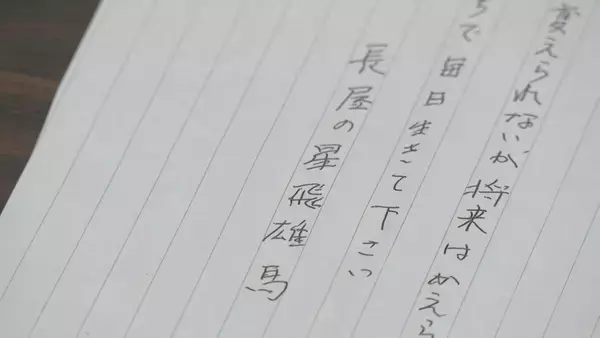 変えられないが将来はかえら
で毎日生きて下さい
長屋の星飛雄馬